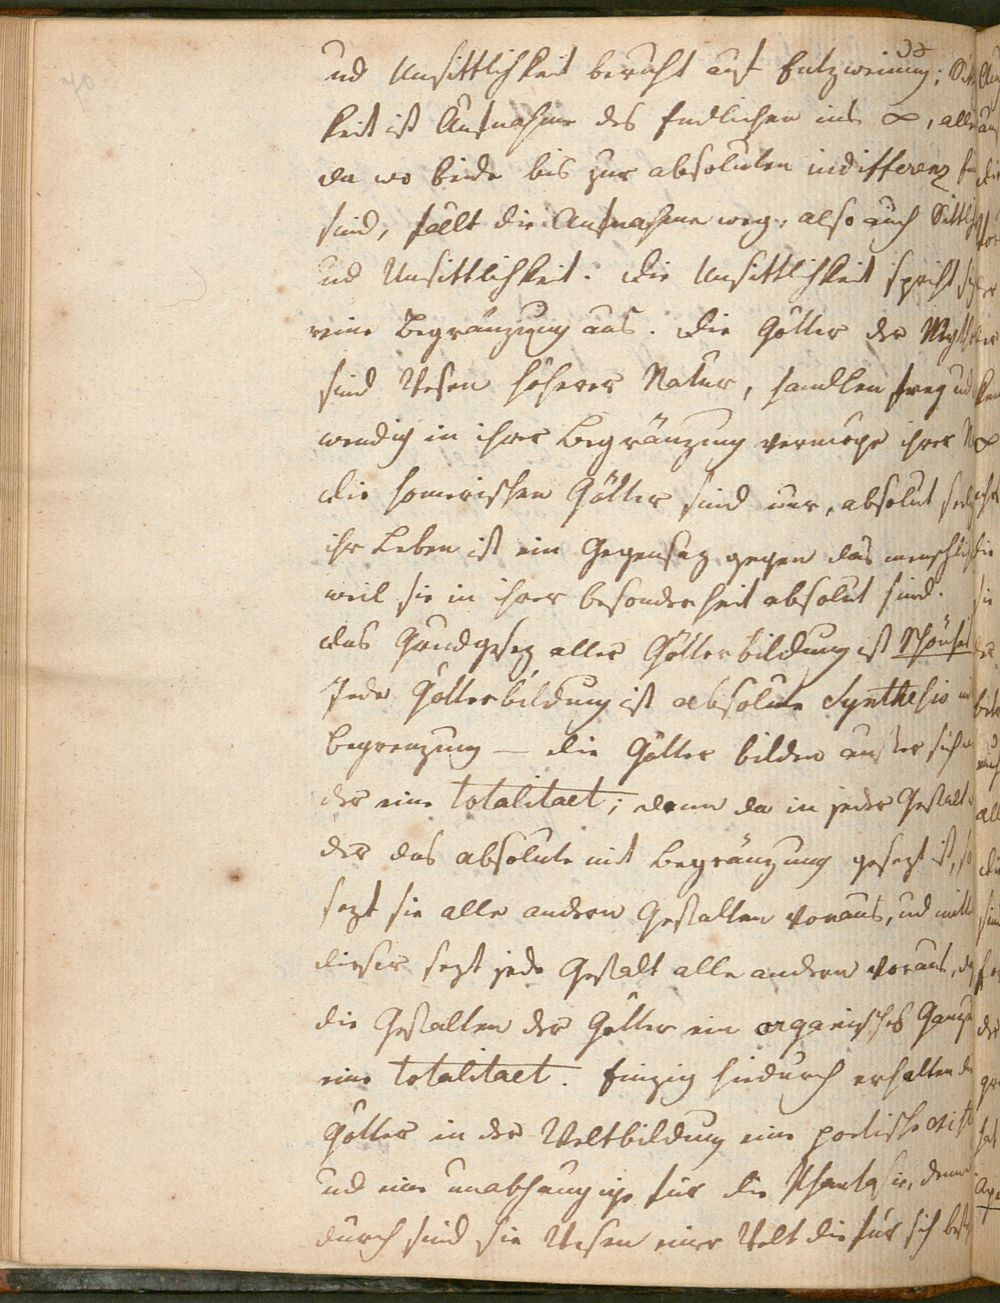 ud Unsittlichkeit beruht auf Entzweiung; Sitt
keit ist Aufnahme des Endlichen ins ∞, alle
da wo beide bis zur absoluten indifferenz
sind, fällt die Aufnahme weg, also auch Sittlich
ud Unsittlichkeit. Die Unsittlichkeit spricht sich
reine Begränzung aus. Die Götter der Myth
sind Wesen höherer Natur, handlen frey ud
wendig in ihrer Begränzung vermöge ihrer N
Die homerischen Götter sind nur, absolut seelig
ihr Leben ist ein Gegensaz gegen das menschlich
weil sie in ihrer besonderheit absolut sind.
Das Grundgesez aller Götterbildung ist Schönheit
Jede Götterbildung ist absolute Synthesis mit
Begrenzung — die Götter bilden unter sich
der eine totalitaet; denn da in jeder Gestalt
der das absolute mit Begränzung gesezt ist, so
sezt sie alle andern Gestalten voraus, ud mittel
dieser sezt jede Gestalt alle andern voraus, d
die Gestalten der Götter ein organisches Ganze
eine totalitaet. Einzig hiedurch erhalten die
Götter in der Weltbildung eine poetische exist
ud eine unabhängige für die Phantasie, denn
durch sind sie Wesen einer Welt die für sich best